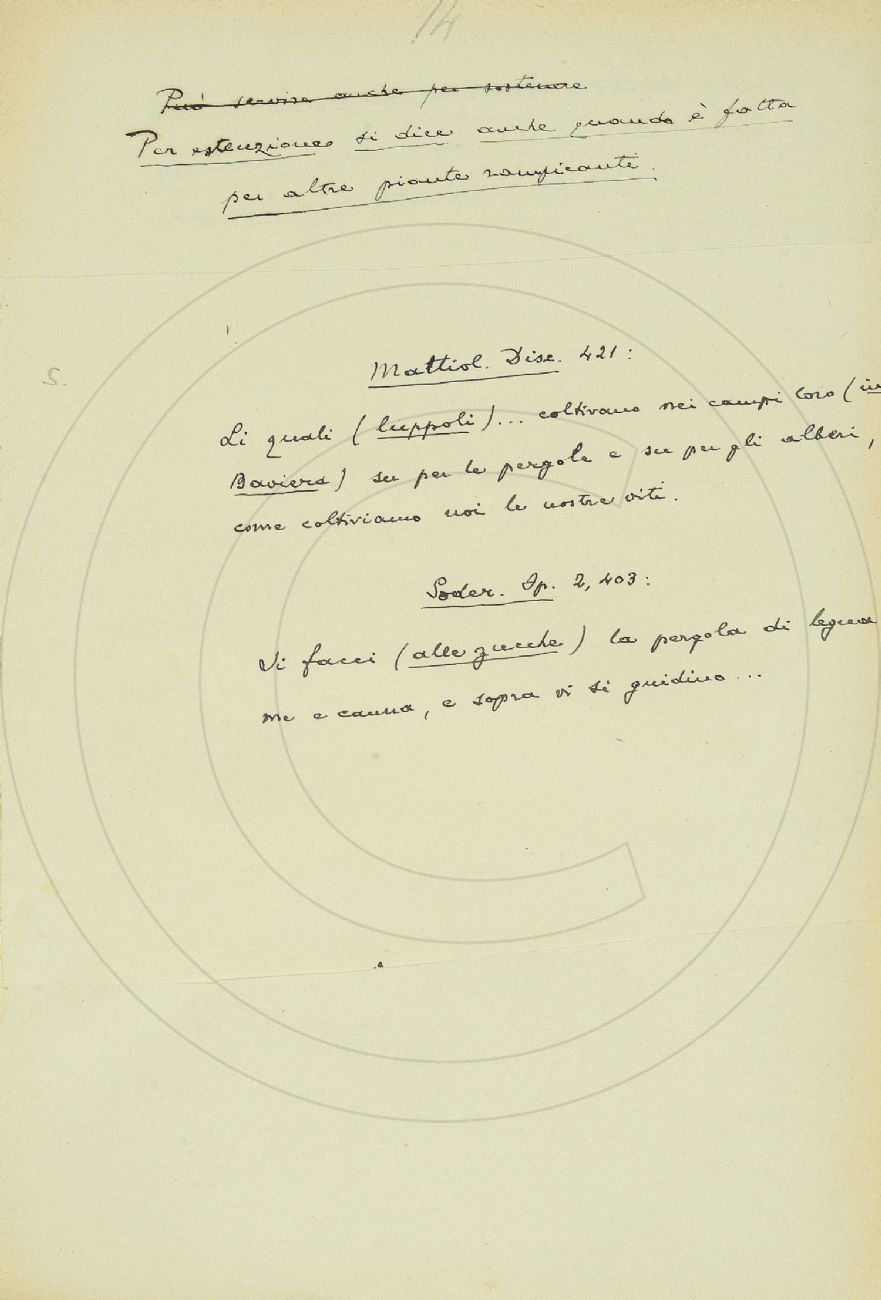 14
Può servire anche per sostenere
Per estenzione si dice anche quando è fatta
per altre piante rampicanti.
S.
Mattiol. Disc. 421:
Li quali (luppoli)... coltivano nei campi loro (in
Baviera) su per le pergole e su per gli alberi,
come coltiviamo noi le nostre viti.
Soder. Op. 2, 403:
Vi facci (alle zucche) la pergola di legna
me e canna, e sopra vi si guidino...